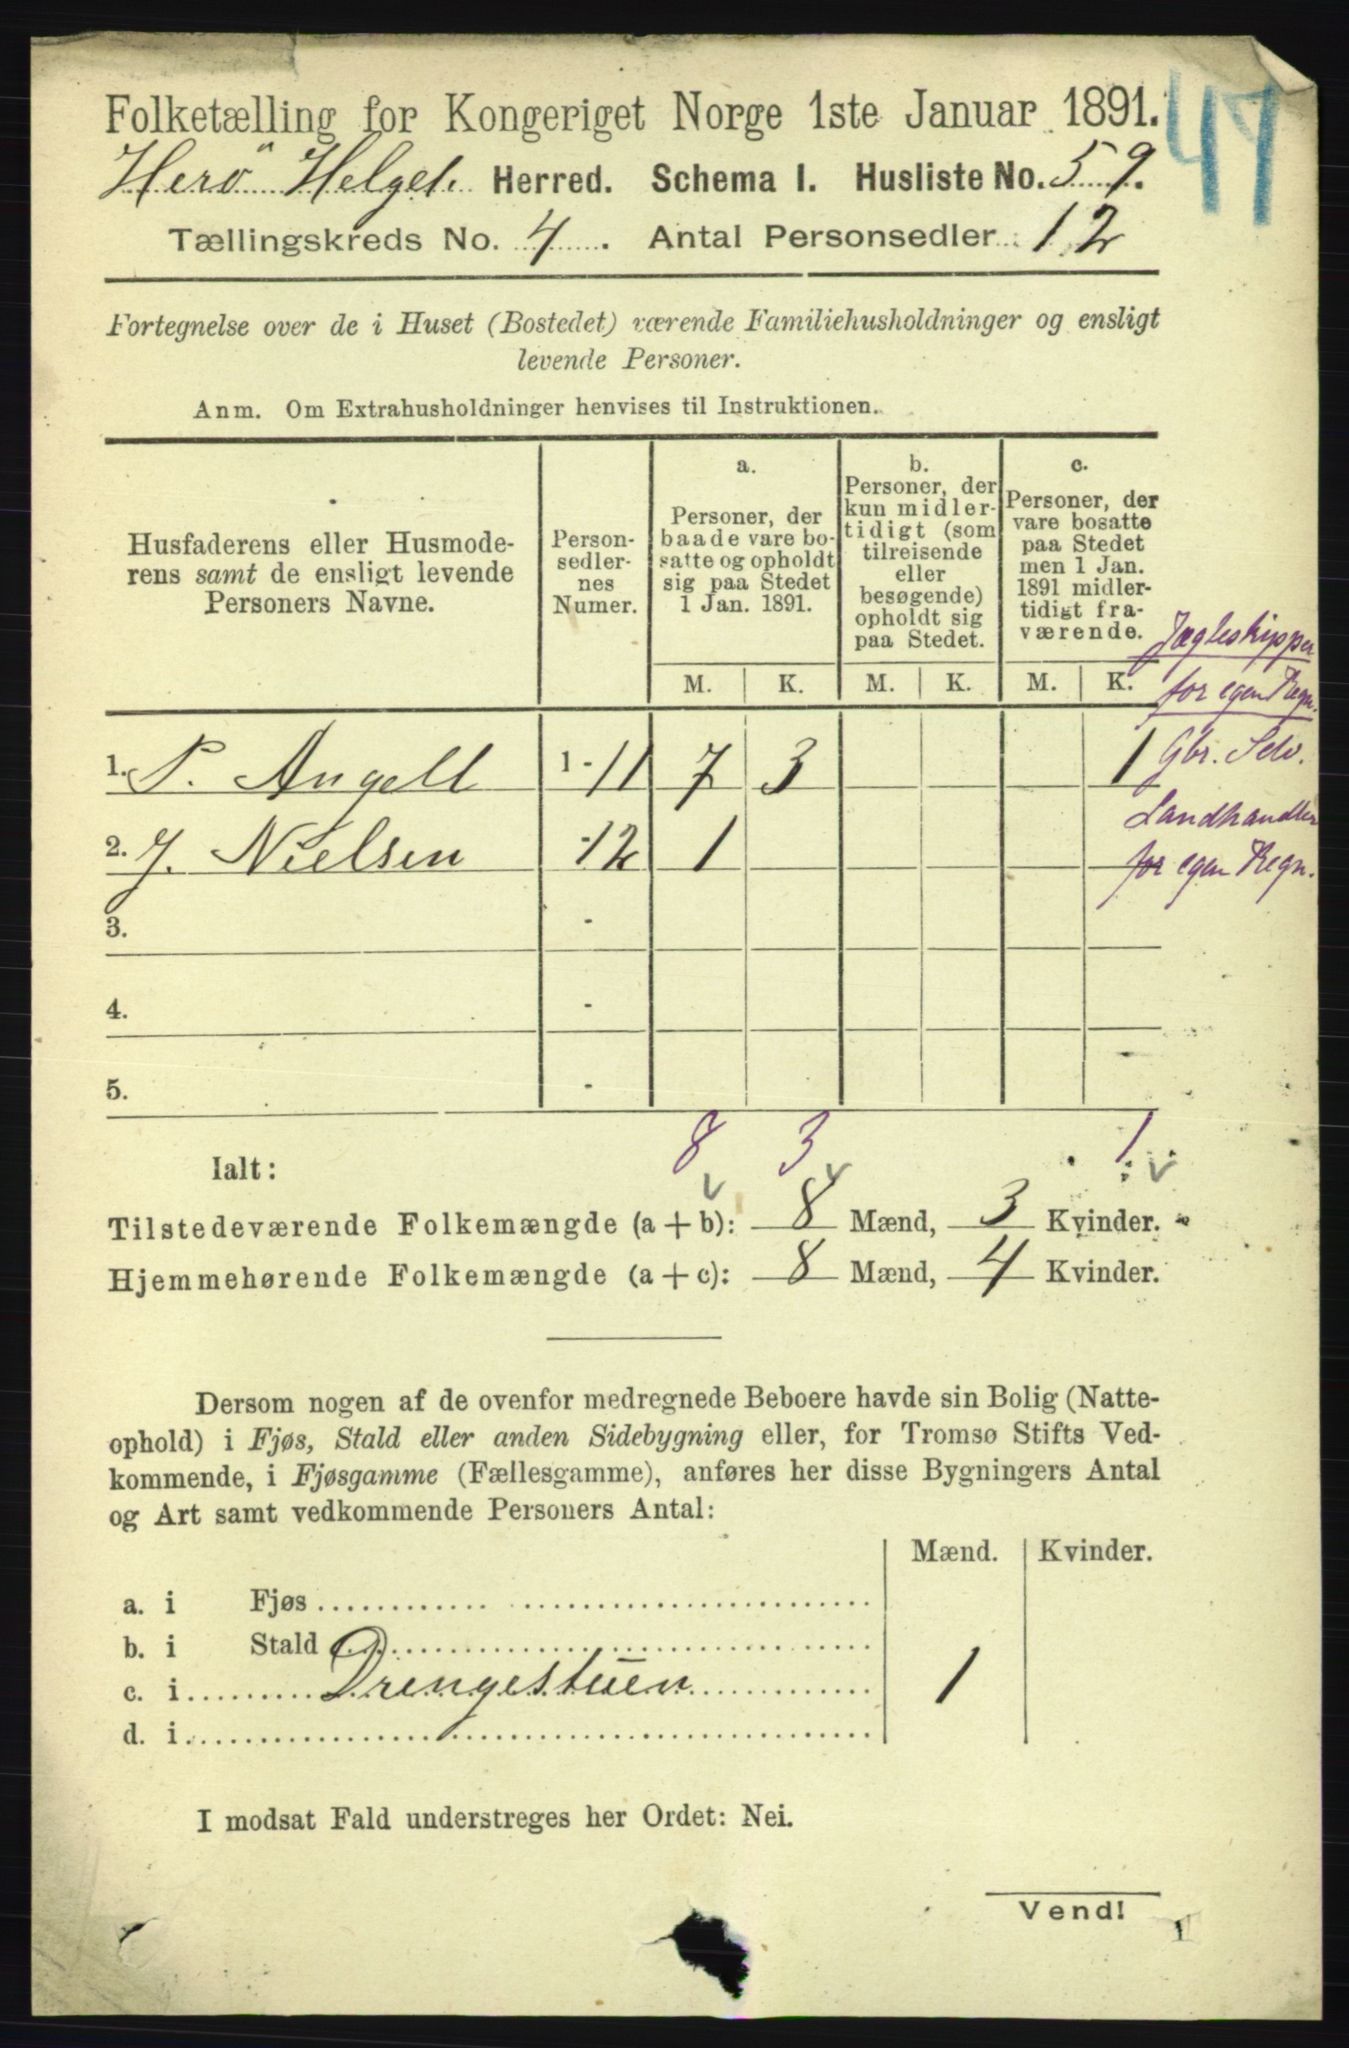 Folketælling for Kongeriget Norge 1ste Januar 1891.
47
Herö Helgel. Herred. Schema I. Husliste No. 59.
Tællingskreds No. 4. Antal Personsedler 12
Fortegnelse over de i Huset (Bostedet) værende Familiehusholdninger og ensligt
levende Personer.
Anm. Om Extrahusholdninger henvises til Instruktionen.
Husfaderens eller Husmode-
rens samt de ensligt levende
Personers Navne.
Person-
sedler-
nes
Numer.
a.
Personer, der
baade vare bo-
satte og opholdt
sig paa Stedet
1 Jan. 1891.
b.
Personer, der
kun midler-
tidigt (som
tilreisende
eller
besøgende)
opholdt sig
paa Stedet.
c.
Personer, der
vare bosatte
paa Stedet
men 1 Jan.
1891 midler-
tidigt fra-
værende.
M. K. M. K. M. K.
Jægteskipper
for egen Regn.
1. P. Angell 1-11 7 3 1 Gbr. Selv.
Landhandler
2. J. Nielsen -12 1 for egen Regn.
3. -
4. -
5. -
8 3 1
Ialt:
Tilstedeværende Folkemængde (a+b): 8 Mænd, 3 Kvinder.
Hjemmehørende Folkemængde (a+c): 8 Mænd, 4 Kvinder.
Dersom nogen af de ovenfor medregnede Beboere havde sin Bolig (Natte-
ophold) i Fjøs, Stald eller anden Sidebygning eller, for Tromsø Stifts Ved-
kommende, i Fjøsgamme (Fællesgamme), anføres her disse Bygningers Antal
og Art samt vedkommende Personers Antal:
Mænd. Kvinder.
a. i Fjøs
b. i Stald
c. i Drengestuen 1
d. i
I modsat Fald understreges her Ordet: Nei.
Vend!